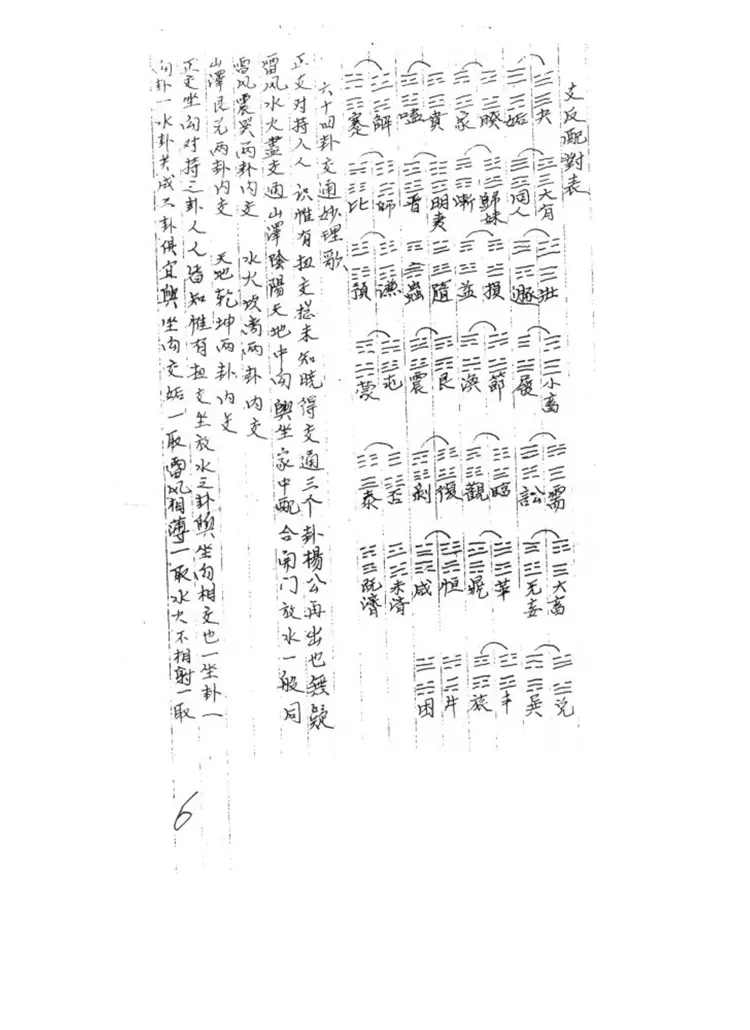 反配對表
夬 姤 睽 家 賁 嗑 解 蹇
大有 同人 歸妹 漸 明夷 晋 師 比
壯 遯 損 益 隨 蠱 謙 預
小畜 履 節 渙 艮 震 屯 蒙
需 訟 臨 觀 復 剥 否 泰
大畜 无妄 萃 恒 咸 未濟 既濟
兌 巽 丰 旅 井 困
六十四卦交通妙理歌
正交对持人人識惟有扭交總未知晓得交通三个卦楊公再出也無疑
雷风水火盡交通山澤陰陽天地中向與坐家中配合開门放水一般同
雷风震巽两卦内交 水火坎离两卦内交
山澤艮兑两卦内交 天地乾坤两卦内交
正交坐向对持之卦人人皆知惟有扭交坐放水之卦與坐向相交也一坐卦一
向卦一水卦共成三卦俱宜與坐向交姤一取雷风相薄一取水火不相射一取
6